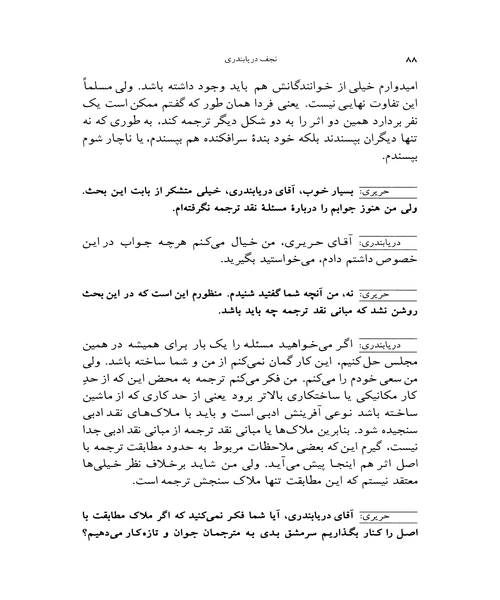 ۸۸
نجف دریابندری
امیدوارم خیلی از خوانندگانش هم باید وجود داشته باشد. ولی مسلماً
این تفاوت نهایی نیست. یعنی فردا همان طور که گفتم ممکن است یک
نفر بردارد همین دو اثر را به دو شکل دیگر ترجمه کند، به طوری که نه
تنها دیگران بپسندند بلکه خود بندهٔ سرافکنده هم بپسندم، یا ناچار شوم
بپسندم.
حریری: بسیار خوب، آقای دریابندری، خیلی متشکر از بابت این بحث.
ولی من هنوز جوابم را دربارهٔ مسئلهٔ نقد ترجمه نگرفته‌ام.
دریابندری: آقای حریری، من خیال می‌کنم هرچه جواب در این
خصوص داشتم دادم، می‌خواستید بگیرید.
حریری: نه، من آنچه شما گفتید شنیدم. منظورم این است که در این بحث
روشن نشد که مبانی نقد ترجمه چه باید باشد.
دریابندری: اگر می‌خواهید مسئله را یک بار برای همیشه در همین
مجلس حل کنیم، این کار گمان نمی‌کنم از من و شما ساخته باشد. ولی
من سعی خودم را می‌کنم. من فکر می‌کنم ترجمه به محض این که از حدِ
کار مکانیکی یا ساختکاری بالاتر برود یعنی از حد کاری که از ماشین
ساخته باشد نوعی آفرینش ادبی است و باید با ملاک‌های نقد ادبی
سنجیده شود. بنابرین ملاک‌ها یا مبانی نقد ترجمه از مبانی نقد ادبی جدا
نیست، گیرم این‌که بعضی ملاحظات مربوط به حدود مطابقت ترجمه با
اصل اثر هم اینجا پیش می‌آید. ولی من شاید برخلاف نظر خیلی‌ها
معتقد نیستم که این مطابقت تنها ملاک سنجش ترجمه است.
حریری: آقای دریابندری، آیا شما فکر نمی‌کنید که اگر ملاک مطابقت با
اصل را کنار بگذاریم سرمشق بدی به مترجمان جوان و تازه‌کار می‌دهیم؟